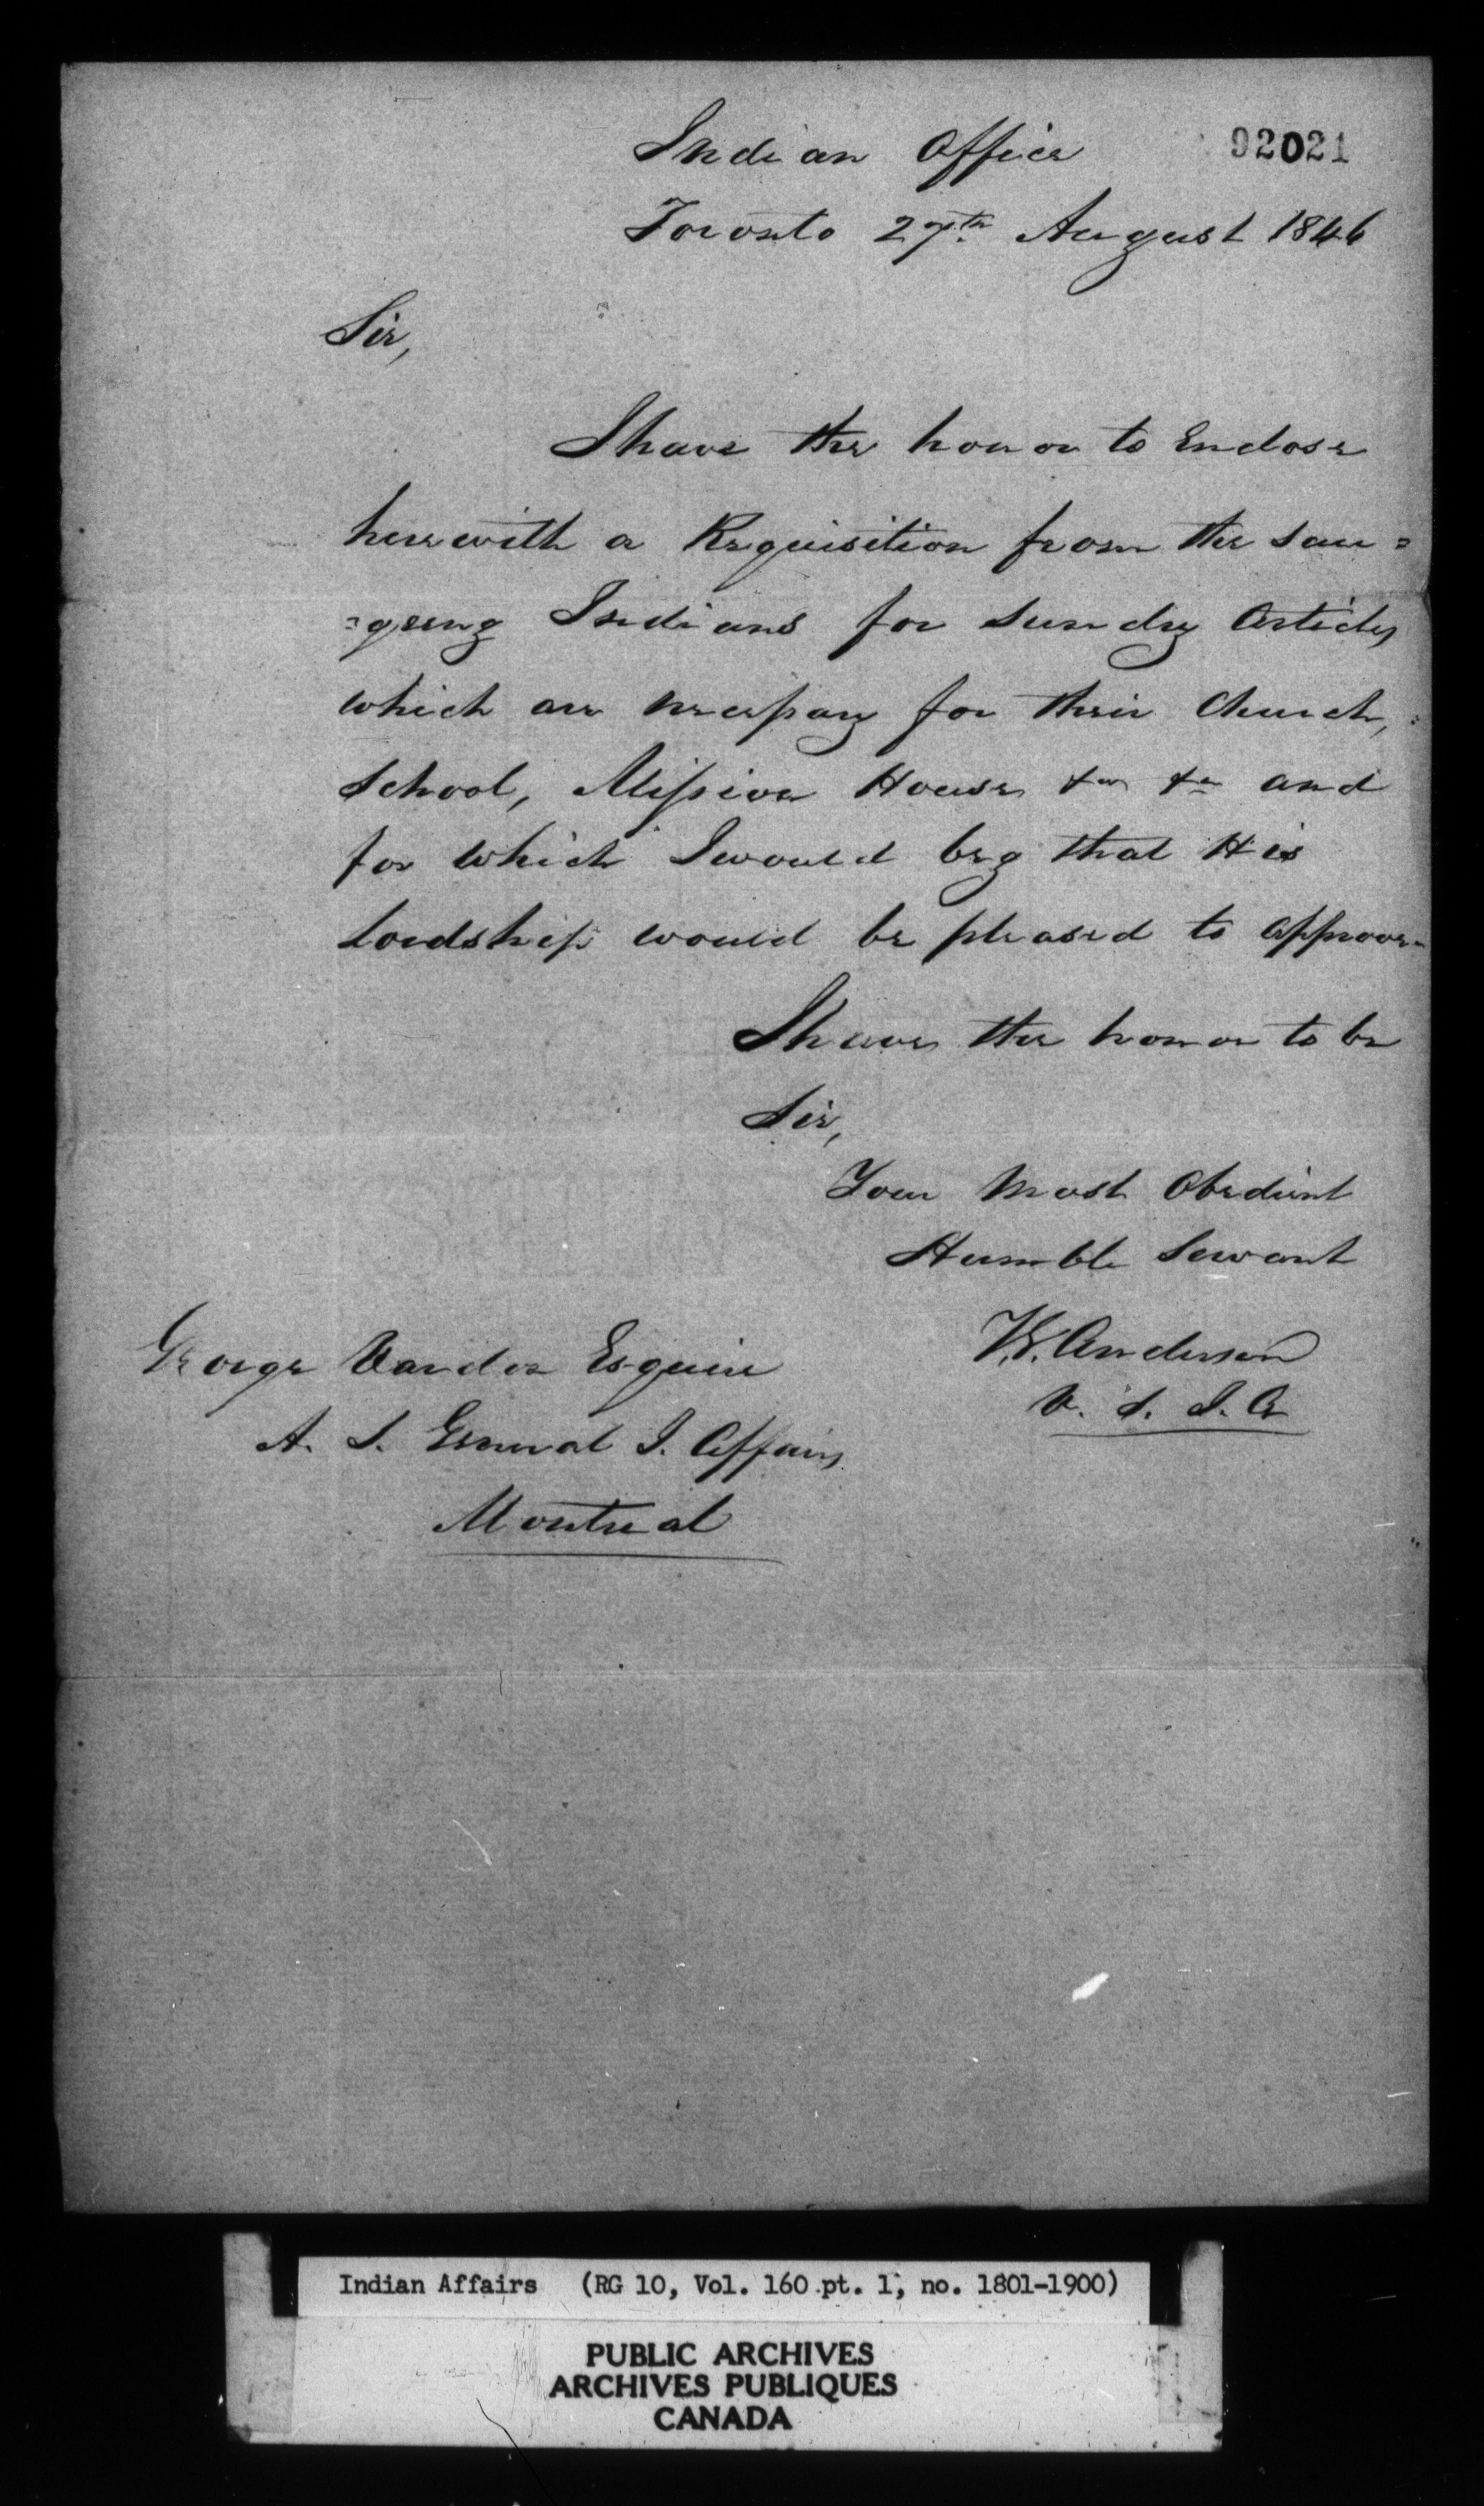 92021
Indian Office
Toronto 27th August 1846
Sir,
I have the honor to Enclose
herewith a Requisition from the Sau=
=geeng Indians for Sundry Articles
which are necessary for their Church,
School, Mission House &c &c and
for which I would beg that His
Lordship would be pleased to approve.
I have the honor to be
Sir,
Your Most Obedient
Humble Servant
T.G. Anderson
V. S. I. A
George Vardon Esquire
A. S. General I. Affairs
Montreal
Indian Affairs (RG 10, Vol. 160 pt. 1, no. 1801-1900)
PUBLIC ARCHIVES
ARCHIVES PUBLIQUES
CANADA